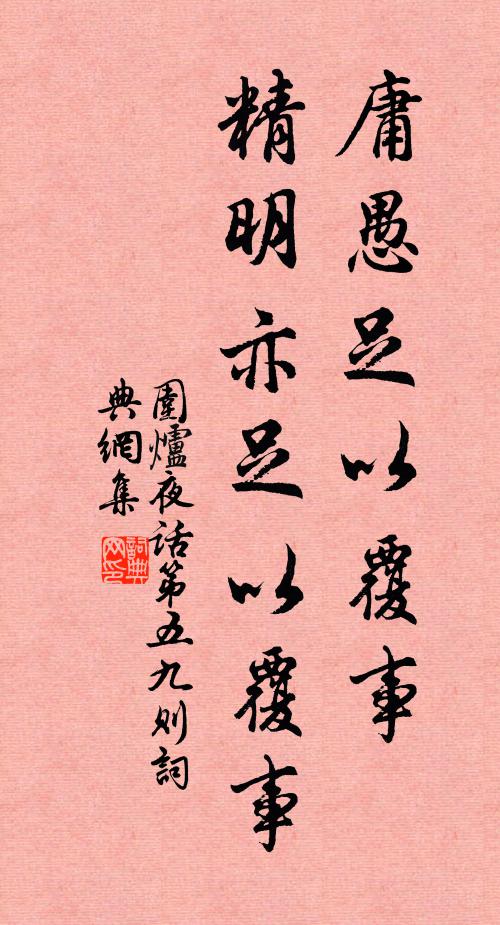 庸愚足以覆事
精明亦足以覆事
圍爐夜话第五九则詞
典網集
詞典
网印